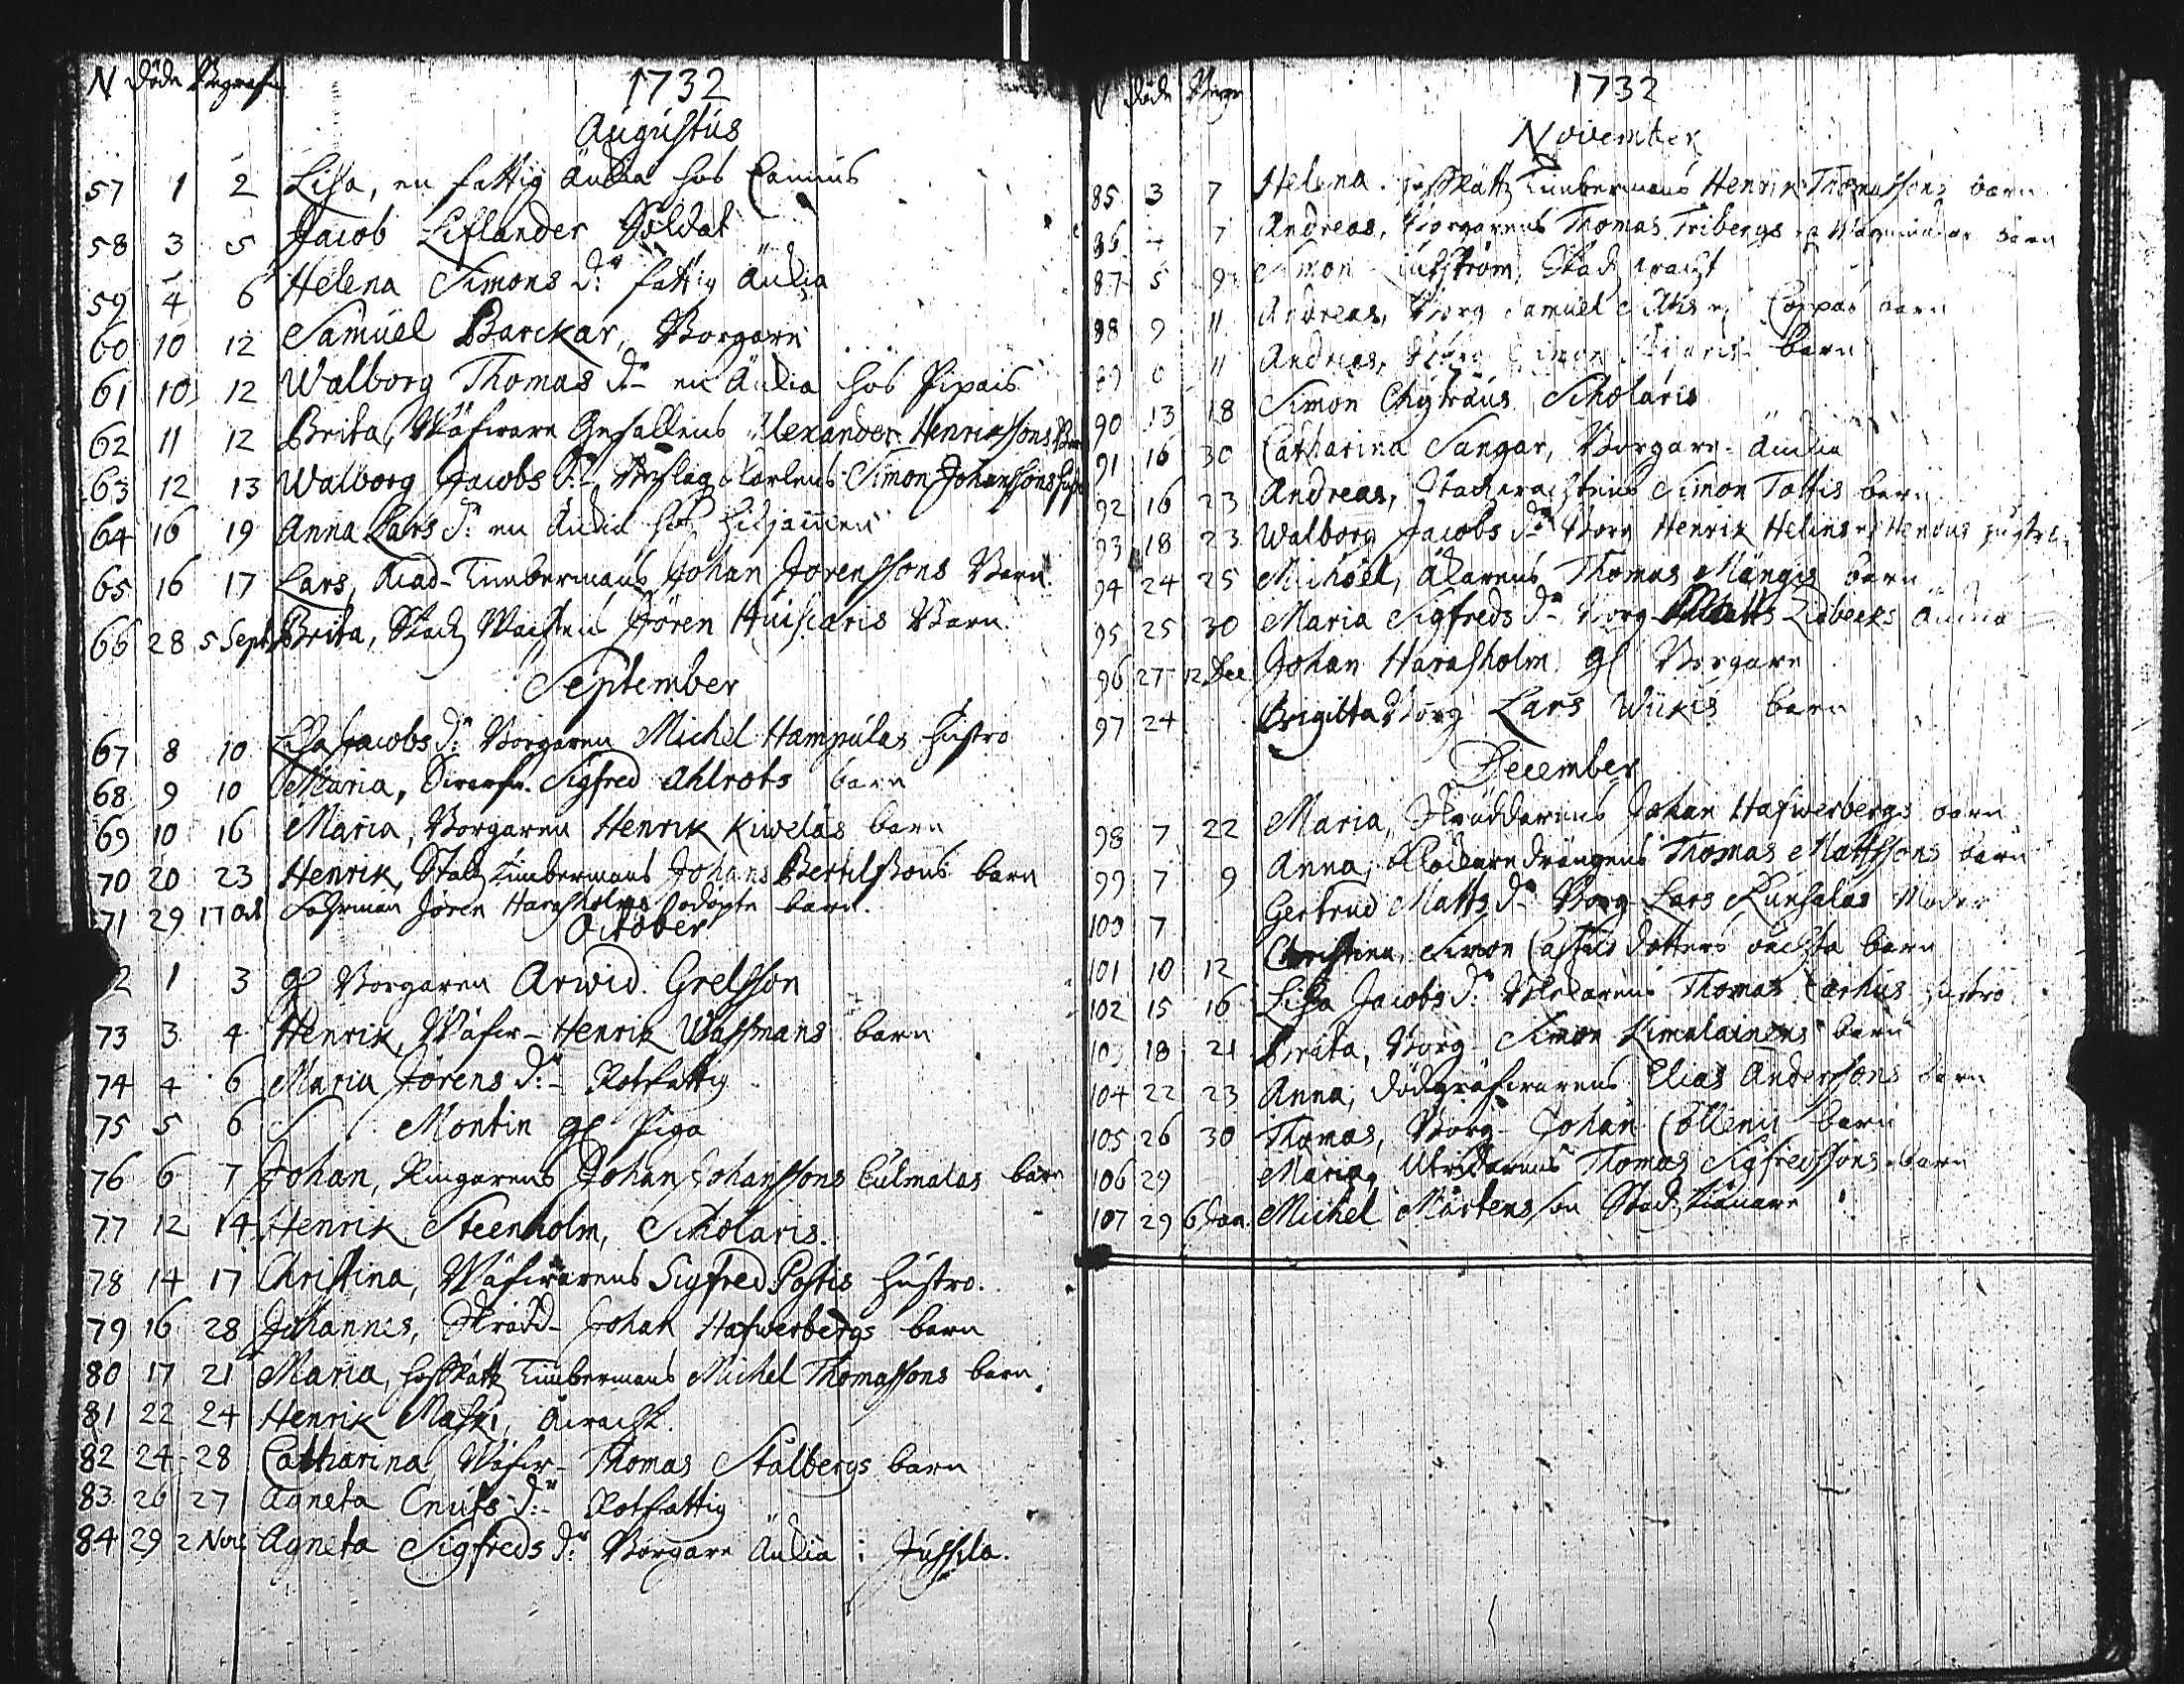 N döde Begrafn
1732
Augustus
57 1 2 Lisa, en fattig Änkia hos Canuus
58 3 5 Jacob Liflander Soldat
59 4 6 Helena Simons dr fattig Änkia
60 10 12 Samuel Barckar, Borgare
61 10 12 Walborg Thomas dr en Änkia hos Pipais
62 11 12 Brita, Wäfware Gesellens Alexander Henrikssons Barn
63 12 13 Walborg Jacobs dr Karlens Simon Johanssons hust
64 16 19 Anna Lars dr en Änkia hos
65 16 17 Lars, Acad-Timbermans Johan Jorenssons Barn
66 28 5 Sept Brita, Stadz Wachtens Jören Huiscaris Barn
September
67 8 10 Lisa Jacobs dr Borgaren Michel Hampulas hustro
68 9 10 Maria, Sigfred Ahlrots barn
69 10 16 Maria, Borgaren Henrik Kiweläs barn
70 20 23 Henrik, Stadz Timbermans Johans Bertilssons barn
71 29 17 Oct Jören Harasholms odöpte barn
October
2 1 3 gl Borgaren Arwid Grelsson
73 3 4 Henrik, Wäfw- Henrik Wassmans barn
74 4 6 Maria Jörens dr Rotfattig
75 5 6 Montin gl Piga
76 6 7 Johan, Ringarens Johan Johanssons Culmalas barn
77 12 14 Henrik Steenholm, Scholaris.
78 14 17 Christina, Wäfwarens Sigfred Postis hustro.
79 16 28 Johannes, Skrädd- Johan Hafwerbergs barn
80 17 21 Maria, hofRätts Timbermans Michel Thomassons barn
81 22 24 Henrik Maski,
82 24 28 Catharina Wäfw- Thomas Stålbergs barn
83 26 27 Agneta Cnuts dr Rotfattig
84 29 2 Nov: Agneta Sigfreds dr Borgare Änkia i Jussila.
N döde Begr
1732
November
85 3 7 Helena. hofRätts Timbermans Henrik Thomassons barn
86 4 7 Andreas, Borgarens Thomas Fribergs barn
87 5 9 Simon Stadz wacht
88 9 11 Andreas, Borg Samuel Coppas barn
89 11 Andreas, Borg Simon barn
90 13 18 Simon Chytraus Scholaris
91 16 30 Catharina Sangar, Borgare-Änkia
92 16 23 Andreas, Stadzwachtens Simon Tattis barn
93 18 23 Walborg Jacobs dr Borg Henrik Helins hustro
94 24 25 Michael, Åkarens Thomas Mängis barn
95 25 30 Maria Sigfreds dr Borg Matts Lidbecks Änkia
96 27 12 Dec Johan Harasholm gl Borgare
97 24 Brigitta Borg Lars Wiikis barn
December
98 7 22 Maria, Skräddarens Johan Hafwerbergs barn
99 7 9 Anna, Klockaredrängens Thomas Mattssons barn
100 7 Gertrud Matts dr Borg Lars Kunsalas Moder
101 10 12 Christina, Simon dotters oächta barn
102 15 16 Lisa Jacobs dr Thomas hustro
10 18 21 Brita, Borg- Simon Kimalainens barn
104 22 23 Anna, dödgräfwarens Elias Anderssons barn
105 26 30 Thomas, Borg- Johan Collenii barn
106 29 Maria, Utridarens Thomas Sigfredssons barn
107 29 6 Jan. Michel Mårtensson Stadz tienare